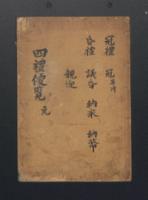 冠禮 冠 笄附
昏禮 議昏 納采 納幣
親迎
四禮便覽 元